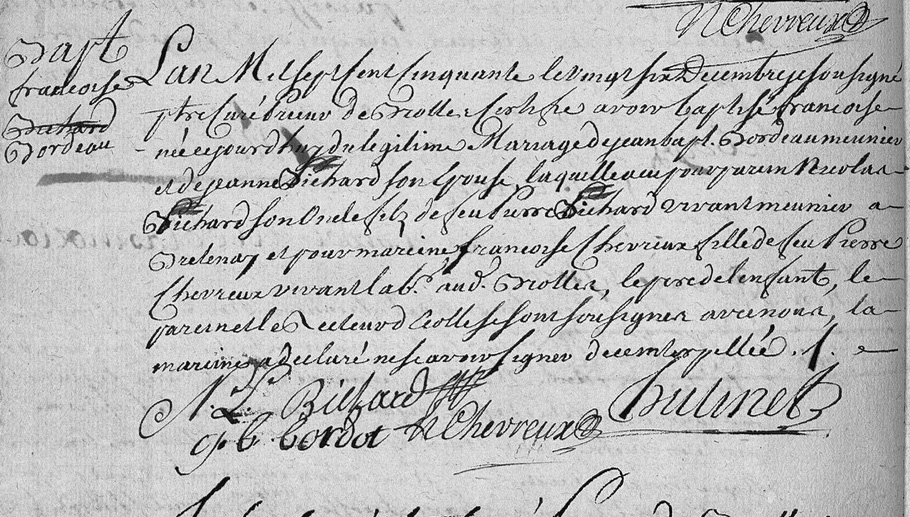 N Chevreux
Bapt
francoise
Bichard
Bordeau
Lan Mil sept Cent Cinquante le vingt six Decembre je soussigné
ptre Curé prieur de Briolle Certifie avoir baptisé francoise
née ce jourdhuy du legitime Mariage de jean bapt. Bordeau meunier
et de jeanne Bichard son Epouse, laquille a eu pour parein Nicolas
Bichard son Oncle fils de feu Pierre Bichard vivant meunier a
Bretenay et pour mareine francoise Chevreux fille de feu Pierre
Chevreux vivant lab.r aud. Briolles, le pere de lenfant, le
parein et le Recteur d Ecolle se sont soussignes avec nous, la
mareine a declaré ne scavoir signer de ce interpellée . / .
N. Bichard
j b bordot N Chevreux hutinet